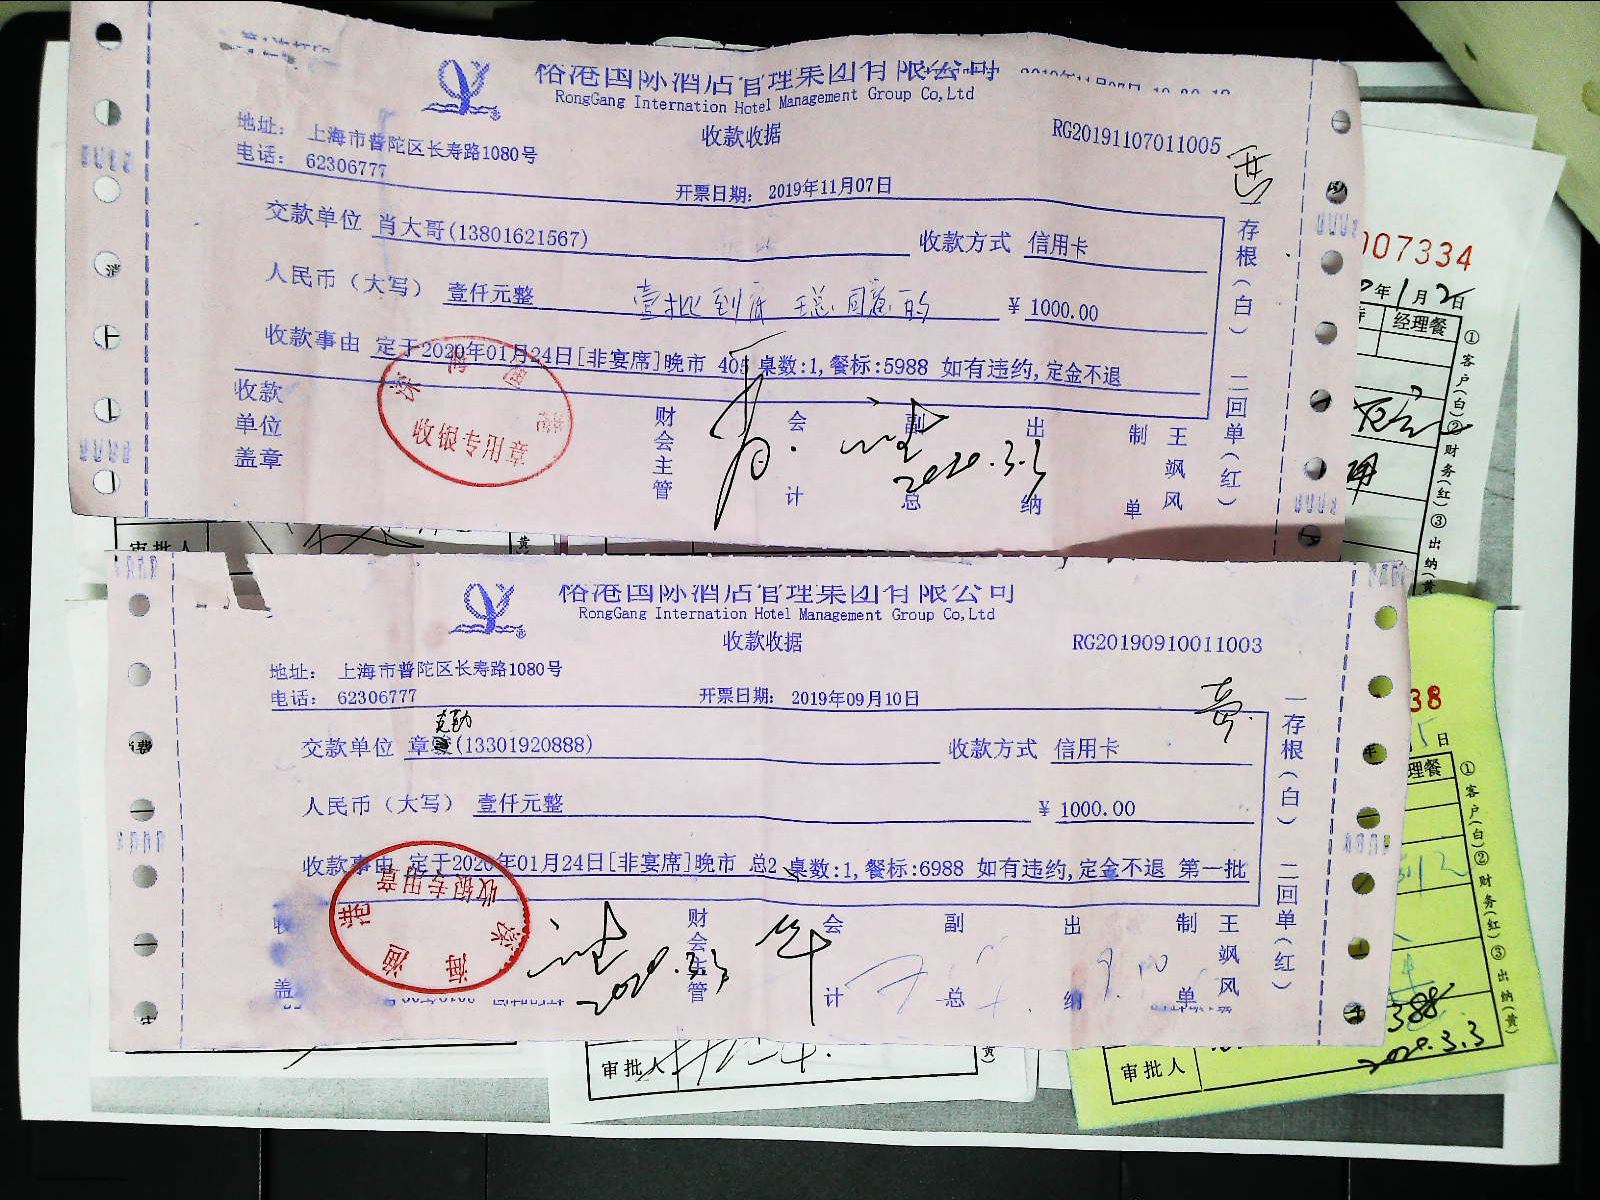 裕港国际酒店管理集团有限公司
RongGang Internation Hotel Management Group Co,Ltd
收款收据
RG20191107011005
地址： 上海市普陀区长寿路1080号
电话： 62306777
开票日期： 2019年11月07日
交款单位 肖大哥(13801621567) 收款方式 信用卡
人民币（大写） 壹仟元整 壹批到底 王总同意的 ￥ 1000.00
收款事由 定于2020年01月24日[非宴席]晚市 405 桌数:1,餐标:5988 如有违约,定金不退
收款单位盖章
收银专用章
财会主管 会计 副总 出纳 制单 王飒风
2020.3.3
一存根（白） 二回单（红）
007334
年1月2日
经理餐
①客户（白）②财务（红）③出纳（黄
审批人
黄
裕港国际酒店管理集团有限公司
RongGang Internation Hotel Management Group Co,Ltd
收款收据
RG20190910011003
地址： 上海市普陀区长寿路1080号
电话： 62306777
开票日期： 2019年09月10日
交款单位 章(13301920888) 收款方式 信用卡
人民币（大写） 壹仟元整 ￥ 1000.00
收款事由 定于2020年01月24日[非宴席]晚市 总2 桌数:1,餐标:6988 如有违约,定金不退 第一批
收银专用章
财会主管 会计 副总 出纳 制单 王飒风
2020.3.3
一存根（白） 二回单（红）
38
5日
理餐
①客户（白）②财务（红）③出纳（黄）
388
2020.3.3
审批人
审批人
黄）